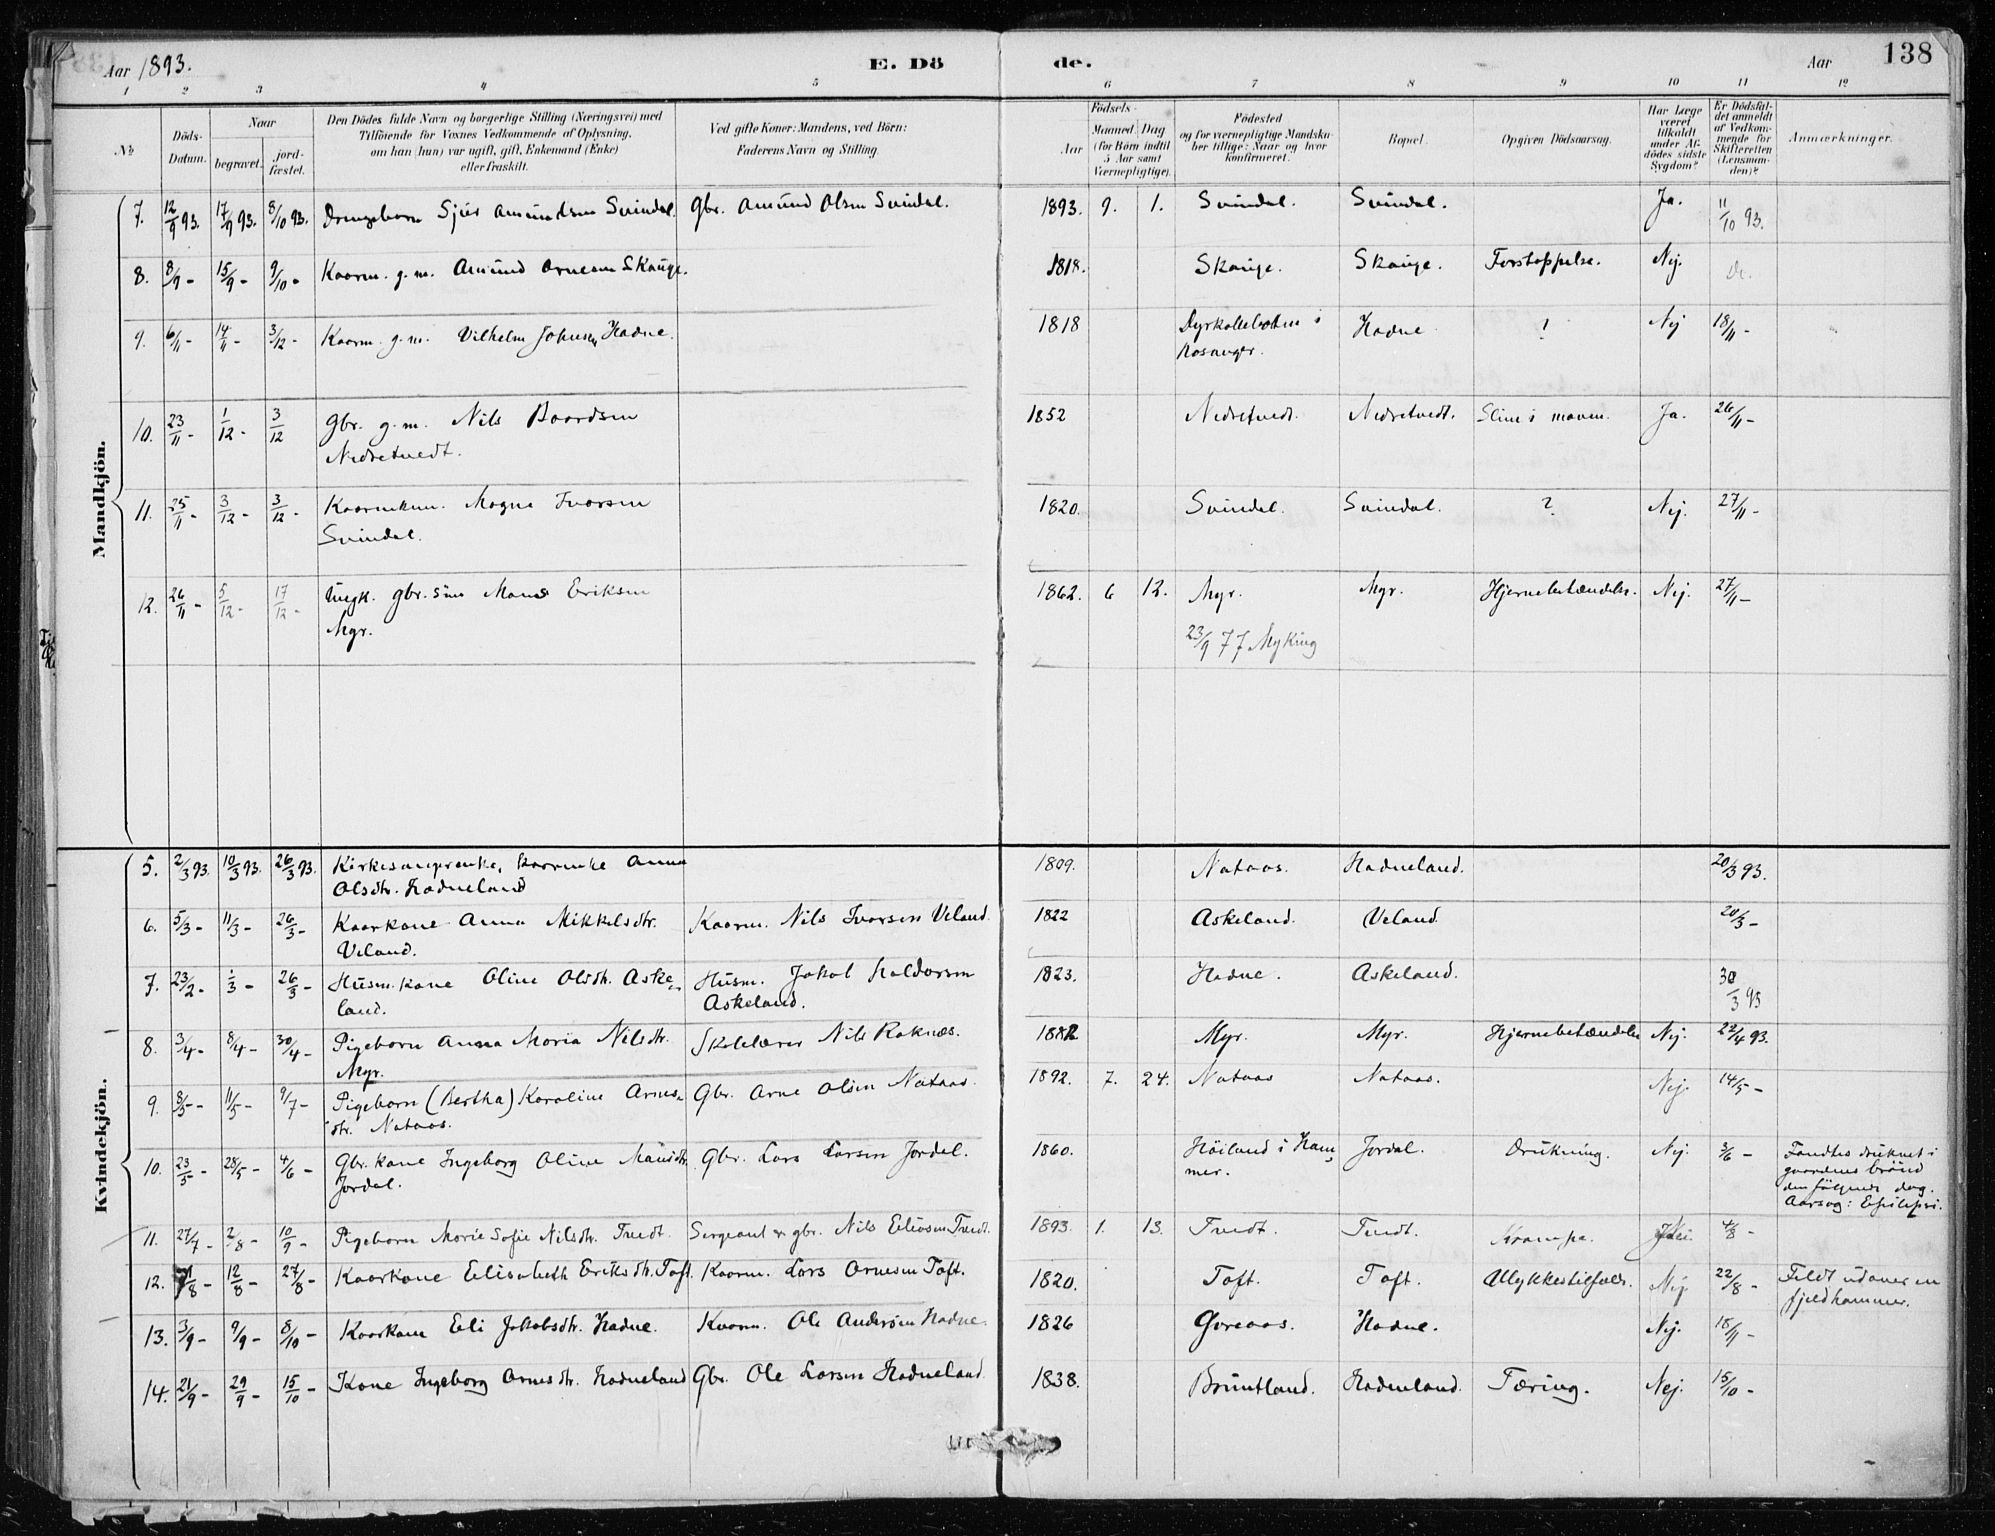 Aar 1893. E. Dö de. Aar 138
1 2 3 4 5 6 7 8 9 10 11 12
No
Döds-Datum.
Naar
begravet. jord-fæstet.
Den Dödes fulde Navn og borgerlige Stilling (Næringsvei) med
Tilföiende for Voxnes Vedkommende af Oplysning,
om han (hun) var ugift, gift, Enkemand (Enke)
eller fraskilt.
Ved gifte Koner: Mandens, ved Börn:
Faderens Navn og Stilling.
Födsels-
Aar Maaned. Dag
(for Börn indtil
5 Aar samt
Værnepligtige).
Födested
og for værnepligtige Mandska-
ber tillige: Naar og hvor
konfirmeret.
Bopæl.
Opgiven Dödsaarsag.
Har Læge
været
tilkaldt
under Af-
dödes sidste
Sygdom?
Er Dödsfal-
det anmeldt
af Vedkom-
mende for
Skifteretten
(Lensman-
den)?
Anmærkninger.
Mandkjön.
7. 12/9 93. 17/9 93. 8/10 93. Drengebarn Sjur Amundsen Svindal. Gbr. Amund Olsen Svindal. 1893. 9. 1. Svindal. Svindal. Ja. 11/10 93.
8. 8/9 - 15/9 - 9/10 - Kaarm. g.m. Amund Arnesen Skauge. 1818. Skauge. Skauge. Forstoppelse. Nej. Do.
9. 6/11 - 14/11 - 3/12 - Kaarm. g.m. Vilhelm Johnsen Hadne. 1818 Dyrkolbotn i Hadne ! Nej 18/11 -
Hosanger.
10. 23/11 - 1/12 - 3/12 Gbr. g.m. Nils Baardsen 1852 Nedretvedt. Nedretvedt. Sliim i maven. Ja. 26/11 -
Nedretvedt.
11. 25/11 - 3/12 - 3/12 - Kaarenkem. Mogne Ivarsen 1820. Svindal. Svindal. ? Nej. 27/11 -
Svindal.
12. 26/11 - 5/12 - 17/12 - Ungk. gbr. søn Mons Eriksen 1862. 6 12. Myr. Myr. Hjernebetændelse. Nej. 27/11 -
Myr. 23/9 77 Myking
Kvindekjön.
5. 2/3 93. 10/3 93. 26/3 93. Kirkesangerenke, kaarenke Anna 1809. Nataas. Hadneland. 20/3 93.
Olsdtr. Hadneland
6. 5/3 - 11/3 - 26/3 - Kaarkone Anna Mikkelsdtr. Kaarm. Nils Ivarsen Veland. 1822 Askeland. Veland. 20/3 -
Veland.
7. 23/2 - 1/3 - 26/3 - Husm.kone Oline Olsdtr. Aske- Husm. Jakob Haldorsen 1823. Hadne. Askeland. 30/3 93
land. Askeland.
8. 3/4 - 8/4 - 30/4 - Pigebarn Anna Maria Nilsdtr. Skolelærer Nils Raknæs. 1882 Myr. Myr. Hjernebetændelse Nej. 22/4 93.
Myr.
9. 3/5 - 11/5 - 9/7 - Pigebarn (Bertha) Karoline Arnes- Gbr. Arne Olsen Nataas. 1892. 7. 24. Nataas Nataas. Nej. 14/5 -
dtr. Nataas.
10. 23/5 - 28/5 - 4/6 - Gbr. kone Ingeborg Oline Mansdtr. Gbr. Lars Larsen Jordal. 1860. Höiland i Ham- Jordal. Drukning. Nej. 3/6 - Fandtes druknet i
Jordal. mer. gaardens brönd
den fölgende dag.
Aarsag: Epilepsi.
11. 27/7 - 2/8 - 10/9 - Pigebarn Marie Sofie Nilsdtr. Tvedt. Sergeant & gbr. Nils Eliasen Tvedt. 1893. 1. 13. Tvedt. Tvedt. Krampe. Nei. 4/8 -
12. 7/8 - 12/8 - 27/8 - Kaarkone Elisabeth Eriksdtr. Toft. Kaarm. Lars Arnesen Toft. 1820. Toft. Toft. Ulykkestilfælde. Nej. 22/8 - Feldt udover en
fjeldhammer.
13. 3/9 - 9/9 - 8/10 - Kaarkone Eli Jakobsdtr. Hadne. Kaarm. Ole Andersen Hadne. 1826 Goreaas. Hadne. Nej. 18/11 -
14. 21/9 - 29/9 - 15/10 - Kone Ingeborg Arnesdtr. Hadneland Gbr. Ole Larsen Hadneland. 1838. Bruntland. Hadneland. Tæring. Nej. 15/10 -